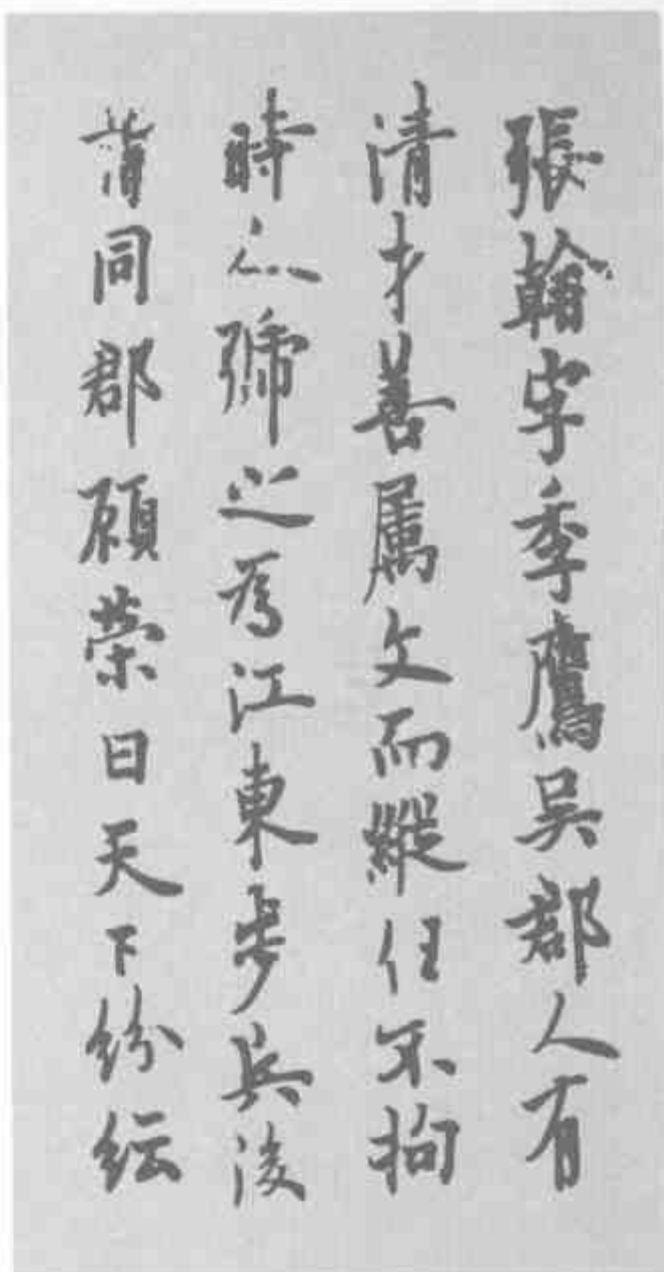 張翰字季鷹吳郡人有
清才善属文而縱任不拘
時人號之為江東步兵後
謂同郡顧榮曰天下紛紜